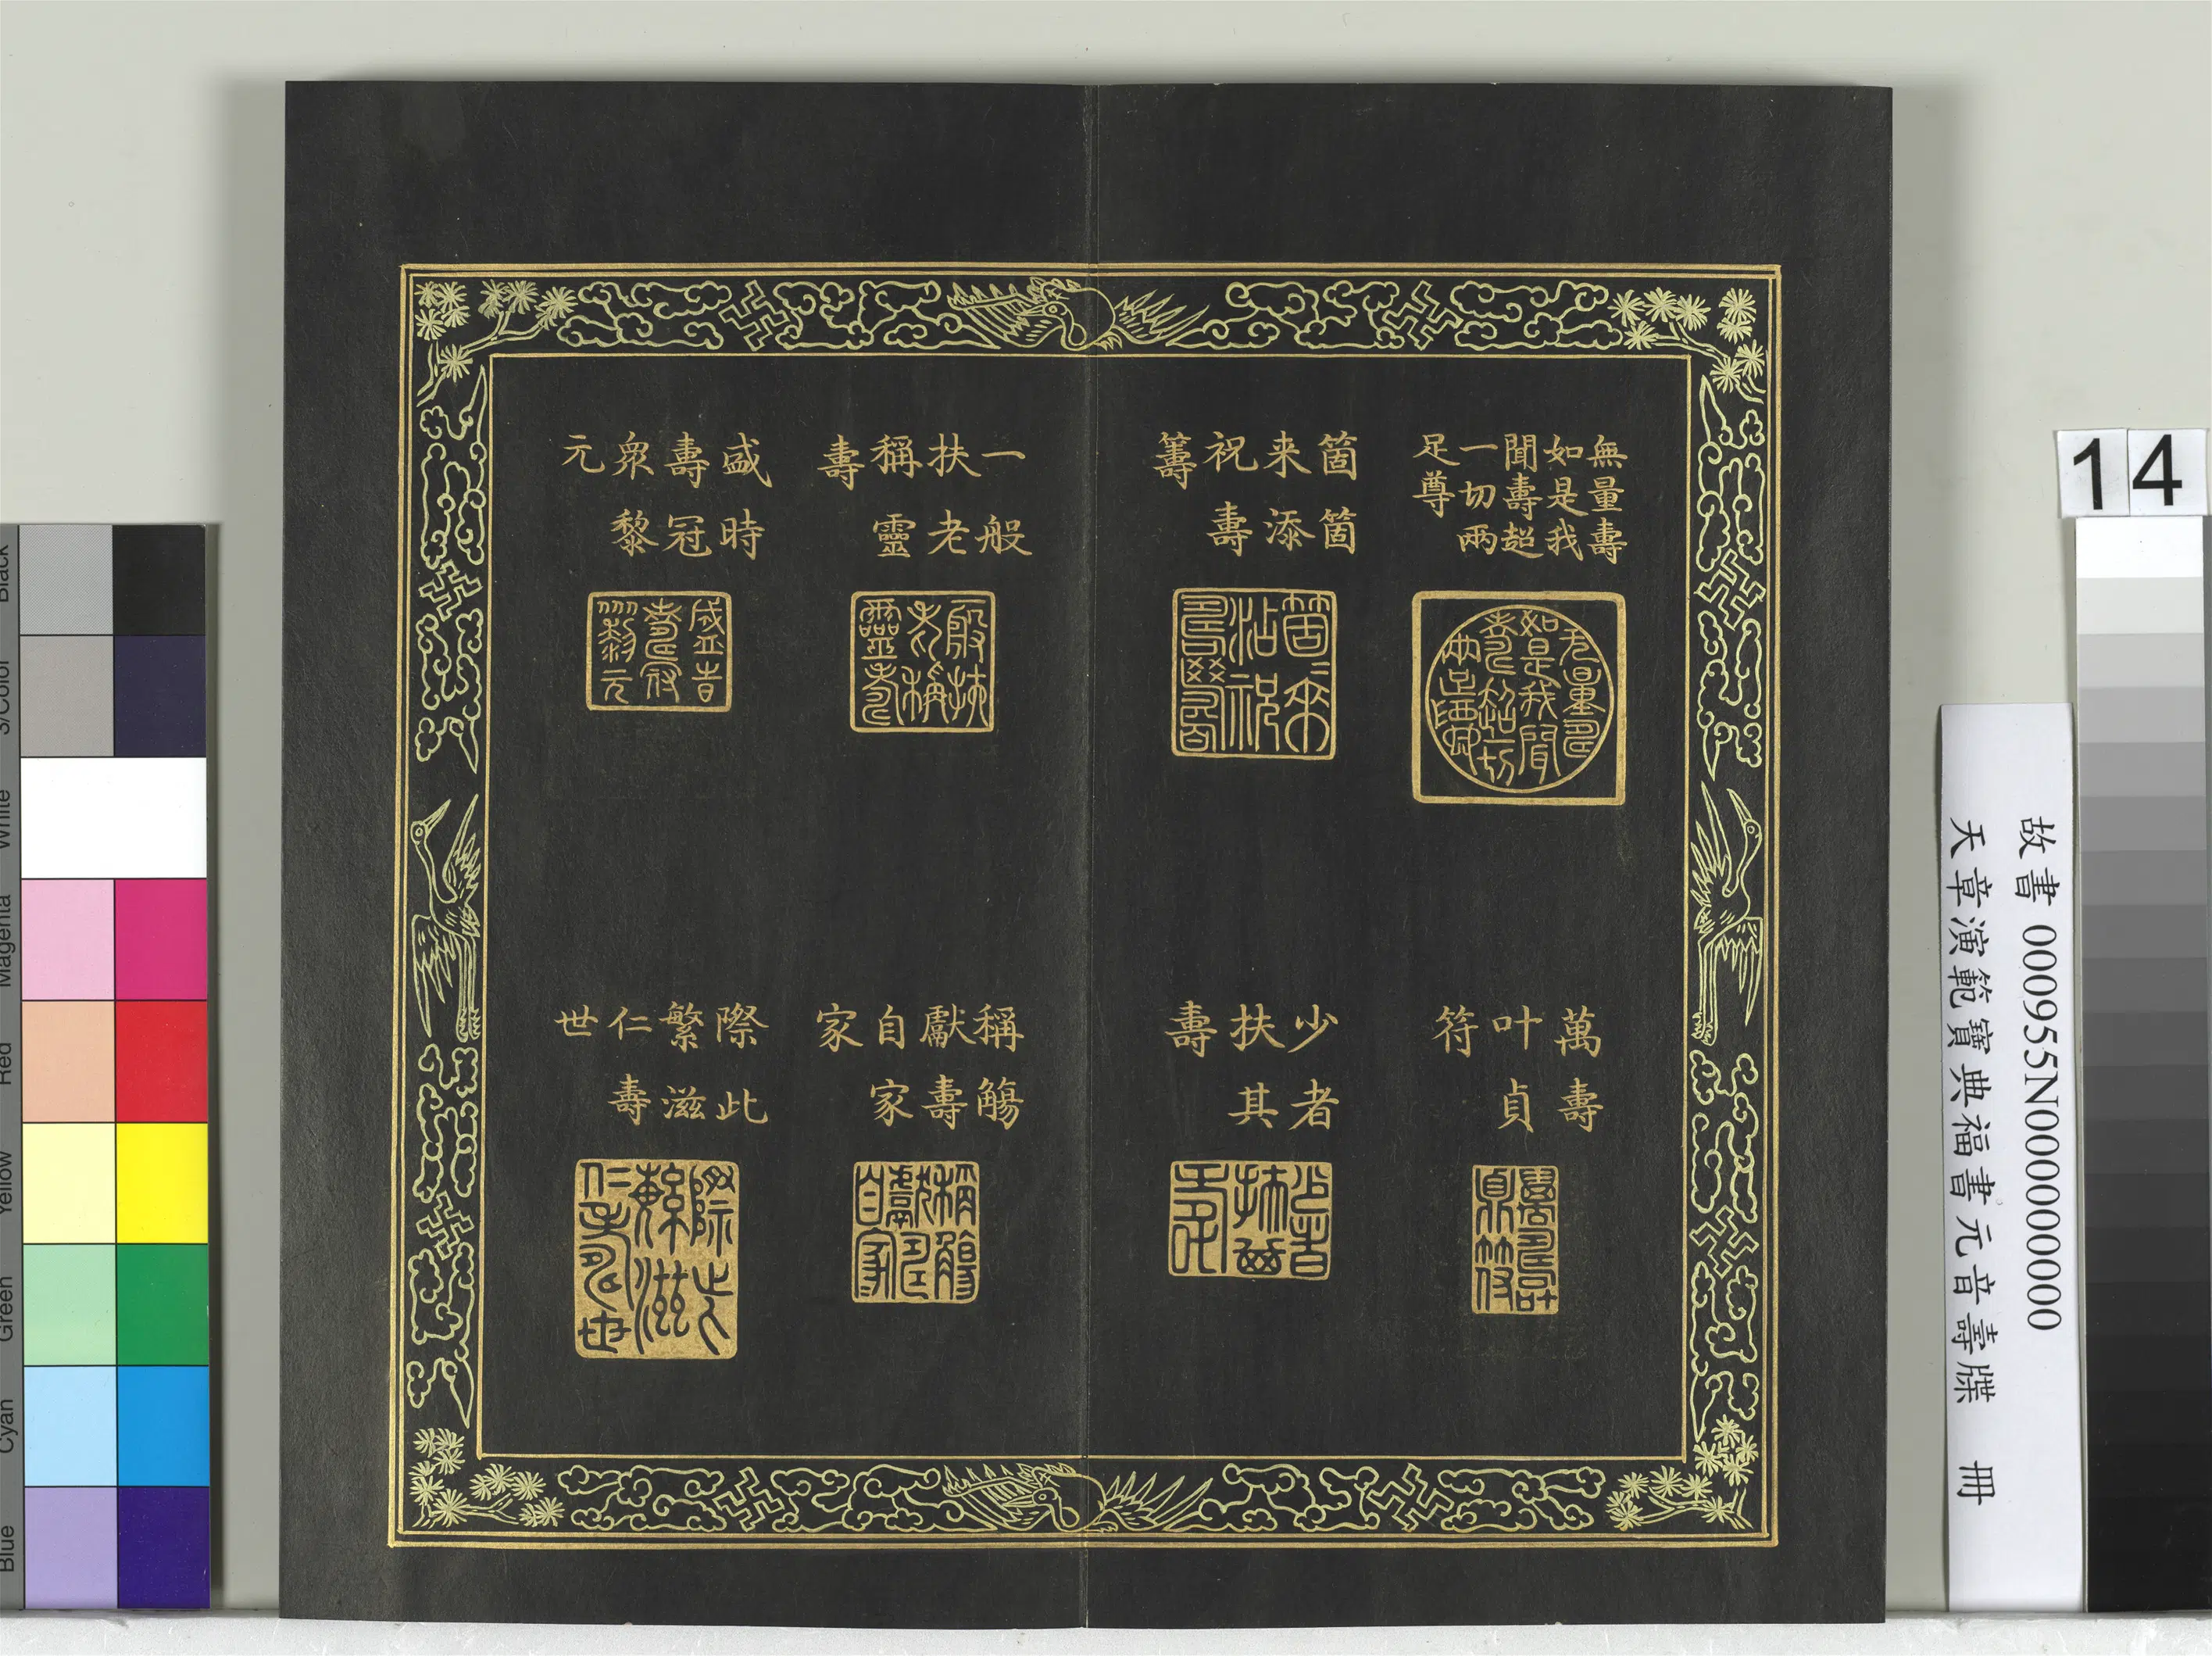 無量壽
如是我
聞壽超
一切兩
足尊
箇箇
来添
祝壽
籌
萬壽
叶貞
符
少者
扶其
壽
一般
扶老
稱靈
壽
盛時
壽冠
衆黎
元
稱觴
獻壽
自家
家
際此
繁滋
仁壽
世
14
故書 000955N000000000
天章演範寶典福書元音壽牒 冊
Black
3/Color
White
Magenta
Red
Yellow
Green
Cyan
Blue